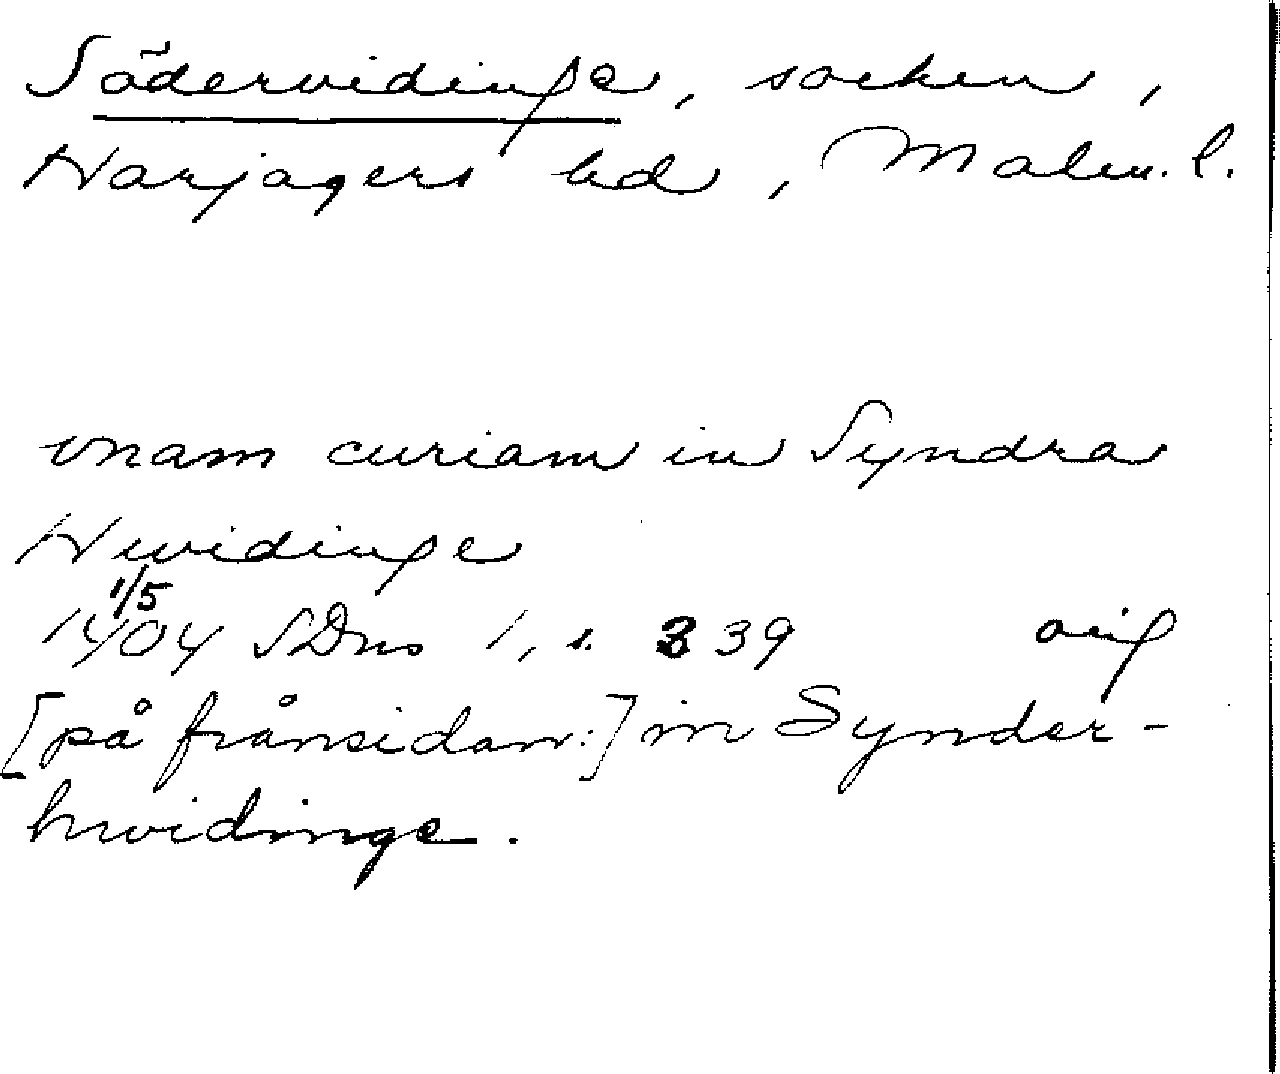 Södervidinge, socken,
Harjagers hd, Malm. l.
vnam curiam in Syndra
Hwidinge
1/5
1404 SDns 1, s. 339 orig
[på frånsidan:] in Synder-
hwidinge.